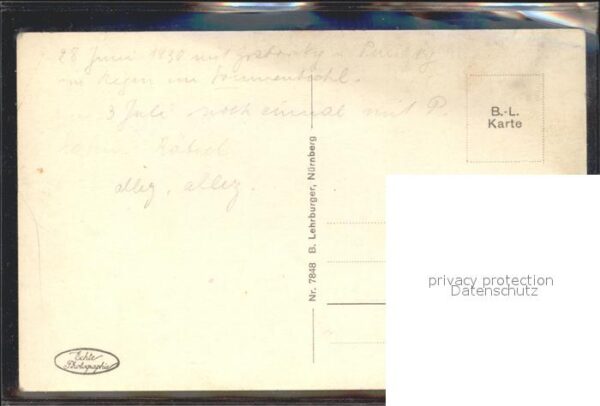 28 Juni 1930 mit
im Regen im
3 Juli noch einmal mit P.
allez, allez.
B.-L.
Karte
Nr. 7848 B. Lehrburger, Nürnberg
Echte
Photographie
privacy protection
Datenschutz